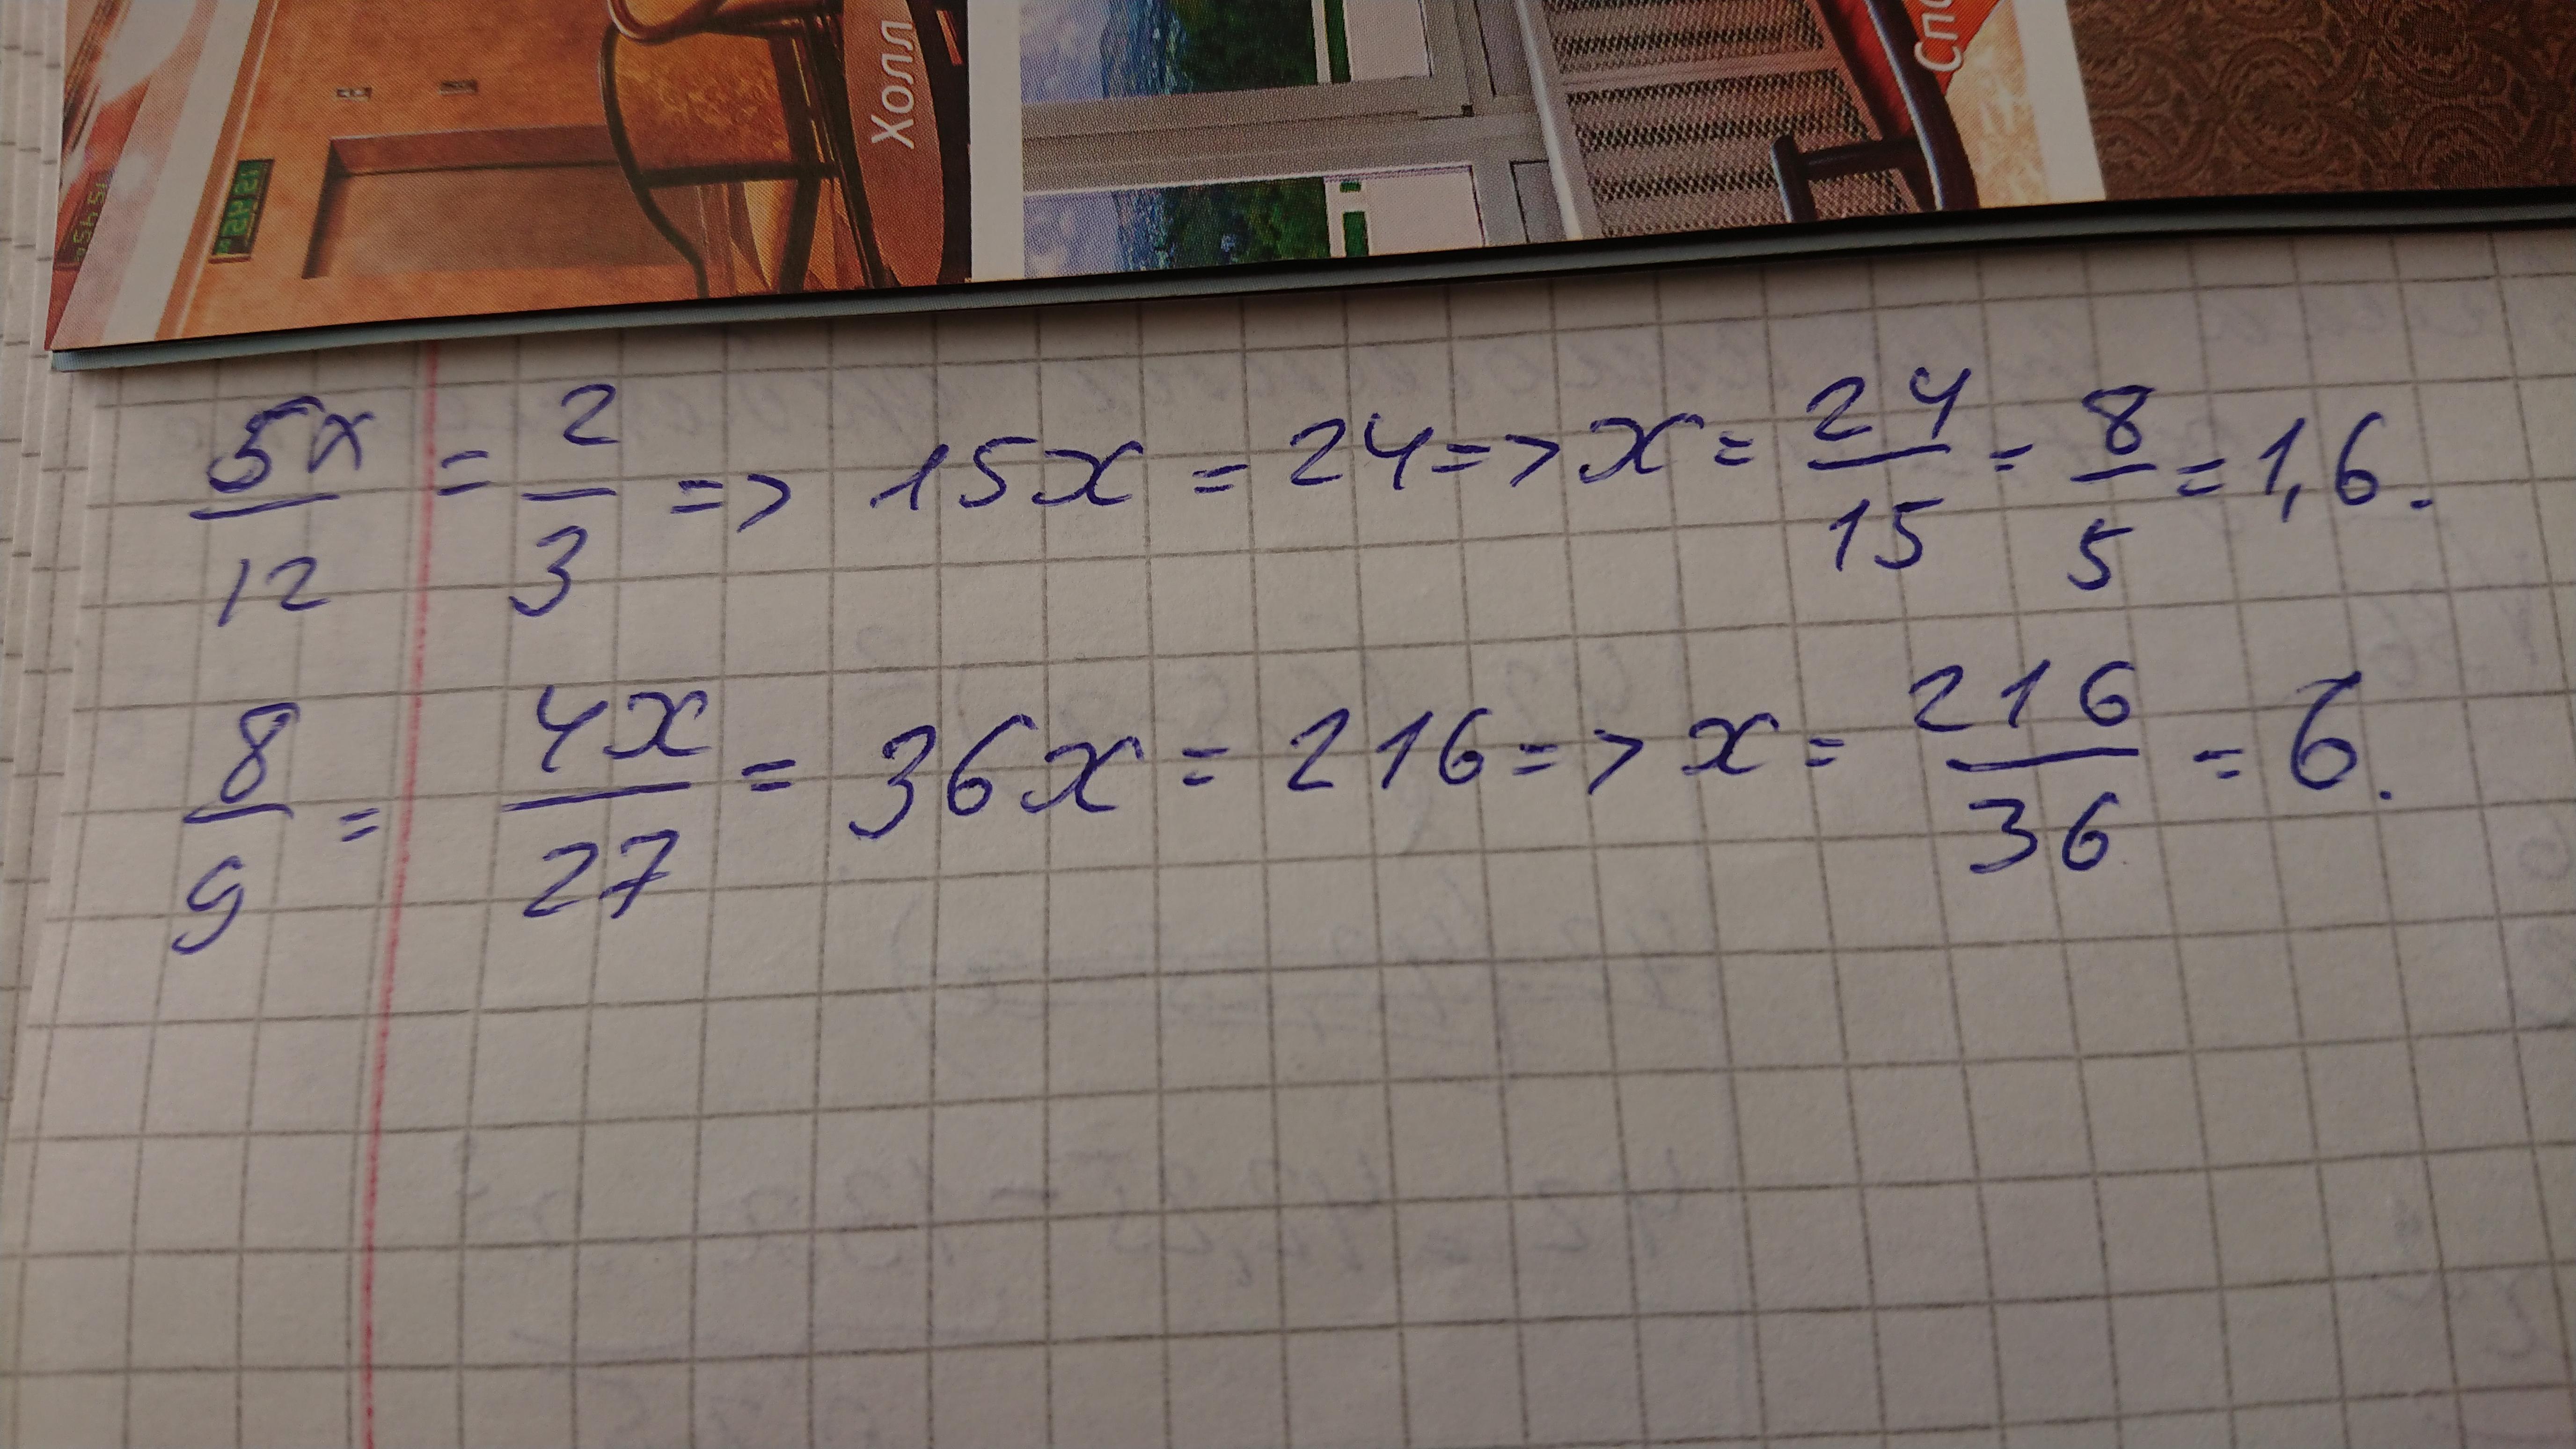 Холл
12:42
5x/12 = 2/3 => 15x = 24 => x = 24/15 = 8/5 = 1,6.
8/9 = 4x/27 = 36x = 216 => x = 216/36 = 6.